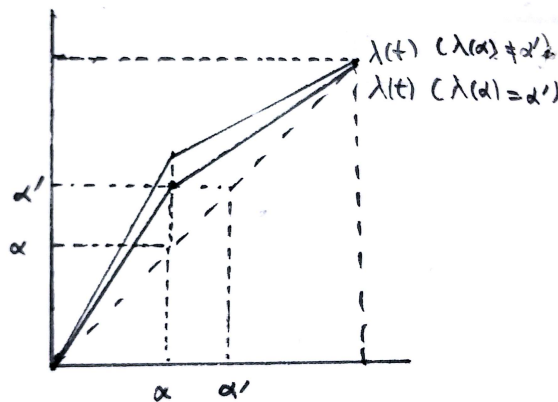 λ(t) (λ(α) ≠ α')
λ(t) (λ(α) = α')
α'
α
α
α'